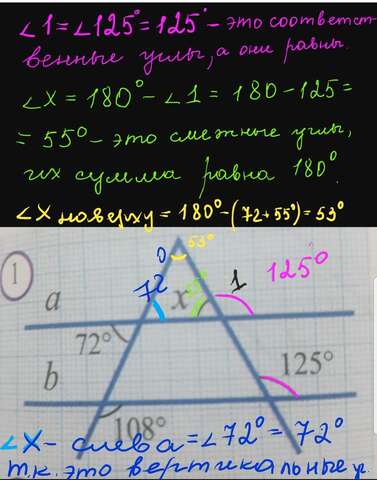 ∠1=∠125°=125° - это соответст-
венные углы, а они равны.
∠X = 180° - ∠1 = 180 - 125 =
= 55° - это смежные углы,
их сумма равна 180°.
∠X наверху = 180° - (72+55°) = 53°
53°
0
1
72
x
1
125°
a
72°
125°
b
108°
∠X - слева = ∠72° = 72°
т.к. это вертикальные у.